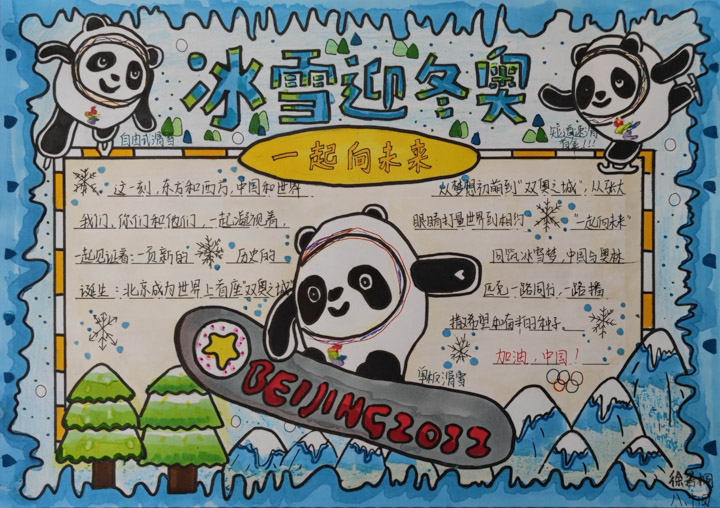 冰雪迎冬奥
一起向未来
自由式滑雪
短道速滑
这一刻，东方和西方，中国和世界
我们、你们和他们，一起凝视着，
一起见证着：一页新的 历史的
诞生：北京成为世界上首座"双奥之城"
从梦想初萌到"双奥之城"，从张大
眼睛打量世界到相约 "一起向未来"
冰雪梦，中国与奥林
匹克一路同行，一路播
撒希望和 种子。
加油，中国！
单板滑雪
BEIJING2022